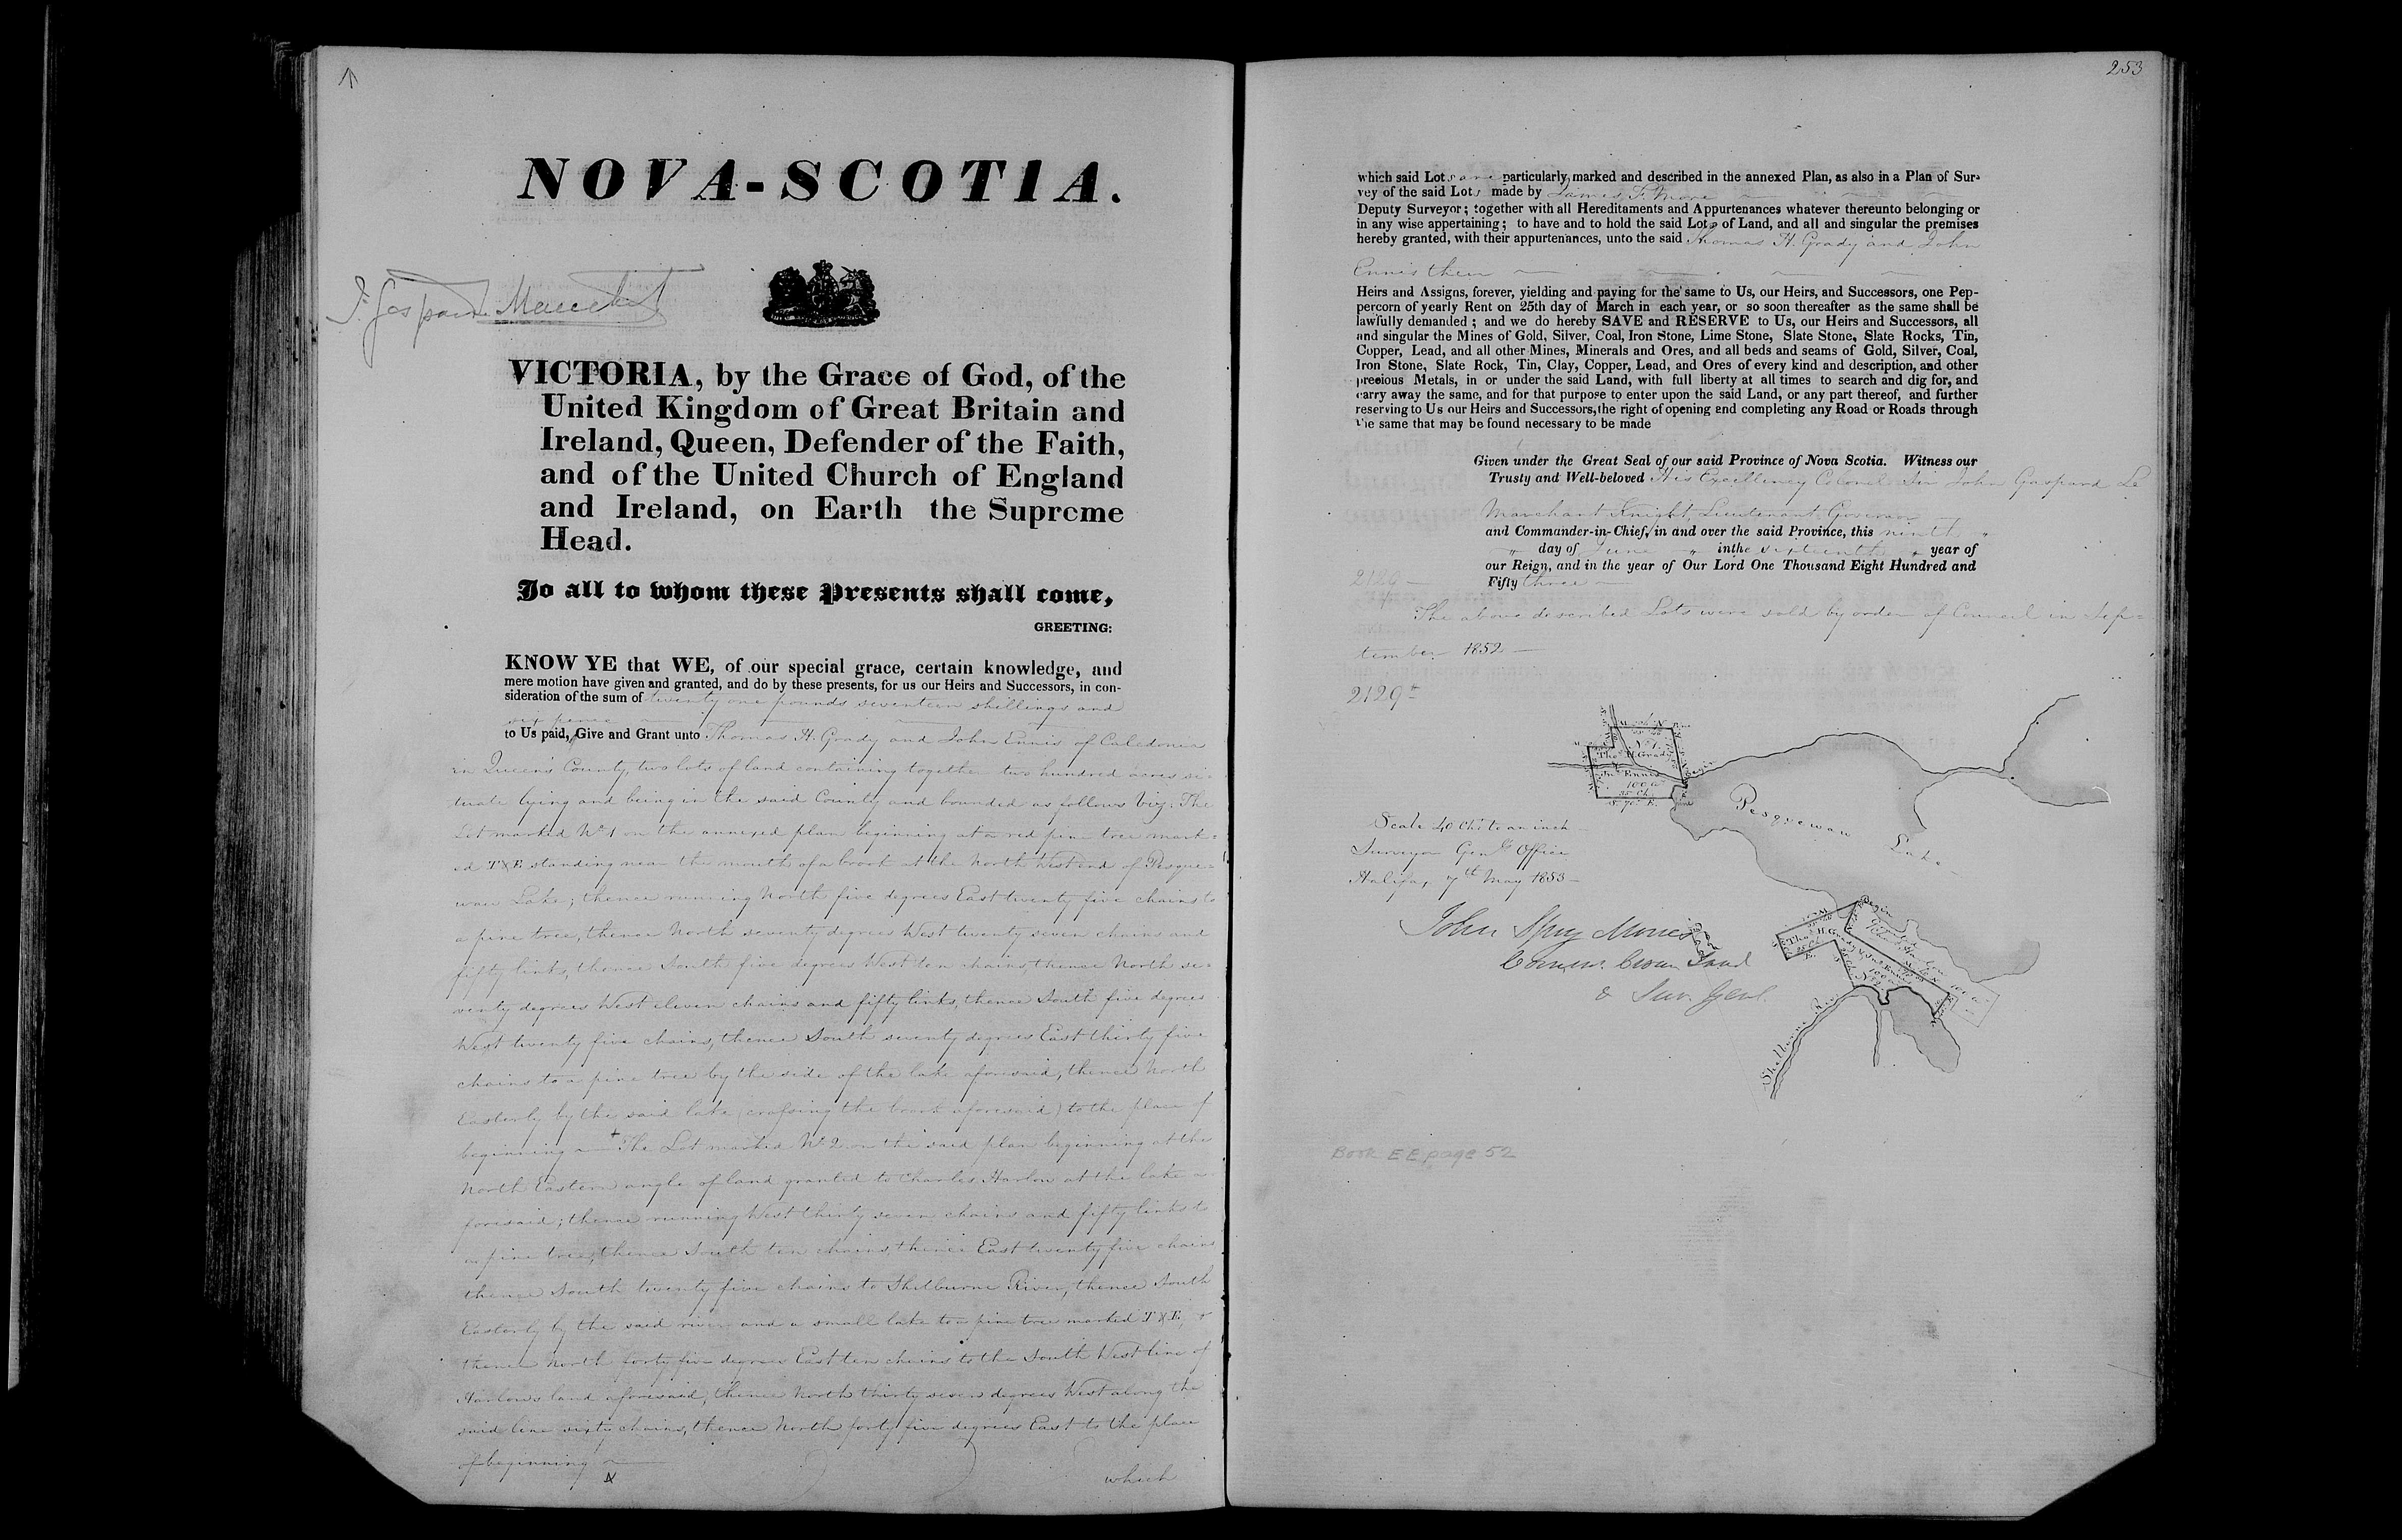 NOVA-SCOTIA.
J. Gaspard Le Marchant
VICTORIA, by the Grace of God, of the
United Kingdom of Great Britain and
Ireland, Queen, Defender of the Faith,
and of the United Church of England
and Ireland, on Earth the Supreme
Head.
To all to whom these Presents shall come,
GREETING:
KNOW YE that WE, of our special grace, certain knowledge, and
mere motion have given and granted, and do by these presents, for us our Heirs and Successors, in con-
sideration of the sum of twenty one pounds seventeen shillings and
six pence
to Us paid, Give and Grant unto Thomas H. Grady and John Ennis of Caledonia
in Queen's County, two lots of land containing together two hundred acres si-
tuate lying and being in the said County and bounded as follows Viz: The
Lot marked No 1 on the annexed plan beginning at a red pine tree mark=
ed T X E standing near the mouth of a brook at the North West end of Pesque=
waw Lake; thence running North five degrees East twenty five chains to
a pine tree, thence North seventy degrees West twenty seven chains and
fifty links, thence South five degrees West ten chains, thence North se=
venty degrees West eleven chains and fifty links, thence South five degrees
West twenty five chains, thence South seventy degrees East thirty five
chains to a pine tree by the side of the lake aforesaid, thence North
Easterly by the said lake (crossing the brook aforesaid) to the place of
beginning + The Lot marked No 2 on the said plan beginning at the
North Eastern angle of land granted to Charles Harlow at the lake a-
foresaid; thence running West thirty seven chains and fifty links to
a pine tree, thence South ten chains, thence East twenty five chains
thence South twenty five chains to Shelburne River, thence South
Easterly by the said river and a small lake to a pine tree marked T X E,
thence North forty five degrees East ten chains to the South West line of
Harlow's land aforesaid, thence North thirty seven degrees West along the
said line sixty chains, thence North forty five degrees East to the place
of beginning
which
253
which said Lots are particularly marked and described in the annexed Plan, as also in a Plan of Sur-
vey of the said Lots made by James F. More
Deputy Surveyor; together with all Hereditaments and Appurtenances whatever thereunto belonging or
in any wise appertaining; to have and to hold the said Lots of Land, and all and singular the premises
hereby granted, with their appurtenances, unto the said Thomas H. Grady and John
Ennis their
Heirs and Assigns, forever, yielding and paying for the same to Us, our Heirs, and Successors, one Pep-
percorn of yearly Rent on 25th day of March in each year, or so soon thereafter as the same shall be
lawfully demanded; and we do hereby SAVE and RESERVE to Us, our Heirs and Successors, all
and singular the Mines of Gold, Silver, Coal, Iron Stone, Lime Stone, Slate Stone, Slate Rocks, Tin,
Copper, Lead, and all other Mines, Minerals and Ores, and all beds and seams of Gold, Silver, Coal,
Iron Stone, Slate Rock, Tin, Clay, Copper, Lead, and Ores of every kind and description, and other
precious Metals, in or under the said Land, with full liberty at all times to search and dig for, and
carry away the same, and for that purpose to enter upon the said Land, or any part thereof, and further
reserving to Us our Heirs and Successors, the right of opening and completing any Road or Roads through
the same that may be found necessary to be made
Given under the Great Seal of our said Province of Nova Scotia. Witness our
Trusty and Well-beloved His Excellency Colonel Sir John Gaspard Le
Marchant Knight, Lieutenant Governor
and Commander-in-Chief, in and over the said Province, this ninth
day of June in the sixteenth year of
our Reign, and in the year of Our Lord One Thousand Eight Hundred and
Fifty three
2129
The above described Lots were sold by order of Council in Sep=
tember 1852
2129
No 1.
Thos H. Grady
&
Jno Ennis
100 a
35 Ch.
S. 70 E.
Begin
Pesquewaw Lake
Scale 40 Chs to an inch
Surveyor Genls Office
Halifax 7th May 1853
John Spry Morris
Commr. Crown Land
& Sur. Genl.
Begin
Thos H. Grady & Jno Ennis
100 a
No 2
Granted to
Chas Harlow
100 a
Shelburne Riv
Book EE page 52